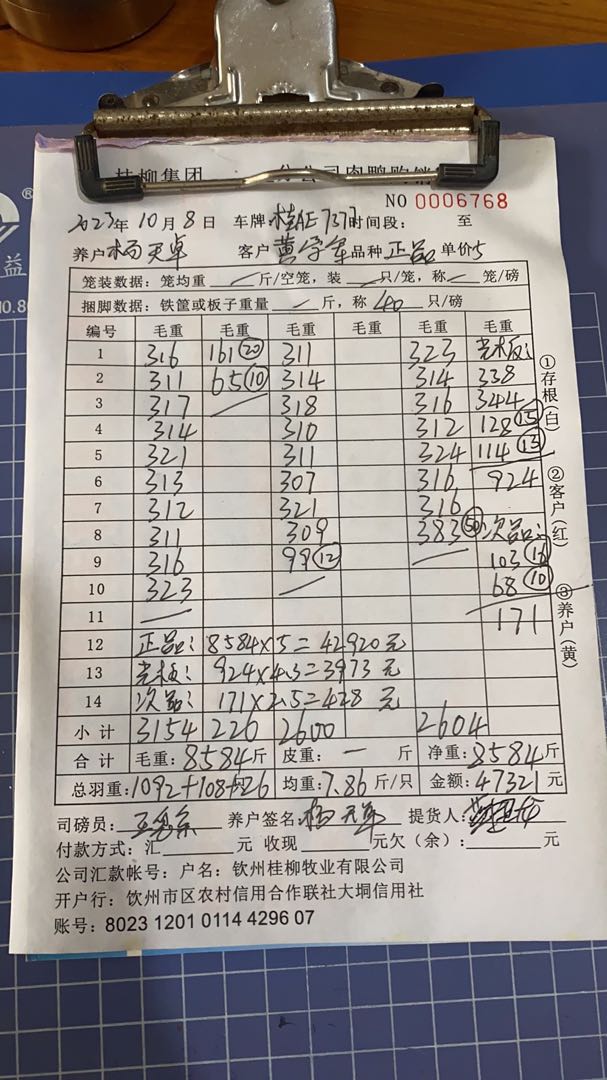 桂柳集团 分公司肉鸭购销
NO 0006768
2023年 10月 8日 车牌 桂AE 7373 时间段: 至
养户 杨天卓 客户 黄学年 品种 正品 单价 5
笼装数据: 笼均重 — 斤/空笼, 装 — 只/笼, 称 — 笼/磅
捆脚数据: 铁筐或板子重量 — 斤, 称 40 只/磅
编号 毛重 毛重 毛重 毛重 毛重 毛重
1 316 161 (20) 311 323 光板:
2 311 65 (10) 314 314 338
3 317 — 318 316 344
4 314 310 312 128 (15)
5 321 311 324 114 (13)
6 313 307 316 924
7 312 321 316
8 311 309 383 (50) 次品:
9 316 99 (12) — 103 (16)
10 323 — 68 (10)
11 — 171
12 正品: 8584×5=42920元
13 光板: 924×4.3=3973元
14 次品: 171×2.5=428元
小计 3154 226 2600 2604
合计 毛重: 8584斤 皮重: — 斤 净重: 8584斤
总羽重: 1092+108+26 均重: 7.86斤/只 金额: 47321元
司磅员: 养户签名: 杨天卓 提货人:
付款方式: 汇 元 收现 元欠(余): 元
公司汇款帐号: 户名: 钦州桂柳牧业有限公司
开户行: 钦州市区农村信用合作联社大垌信用社
账号: 8023 1201 0114 4296 07
①存根(白)
②客户(红)
③养户(黄)
®
益